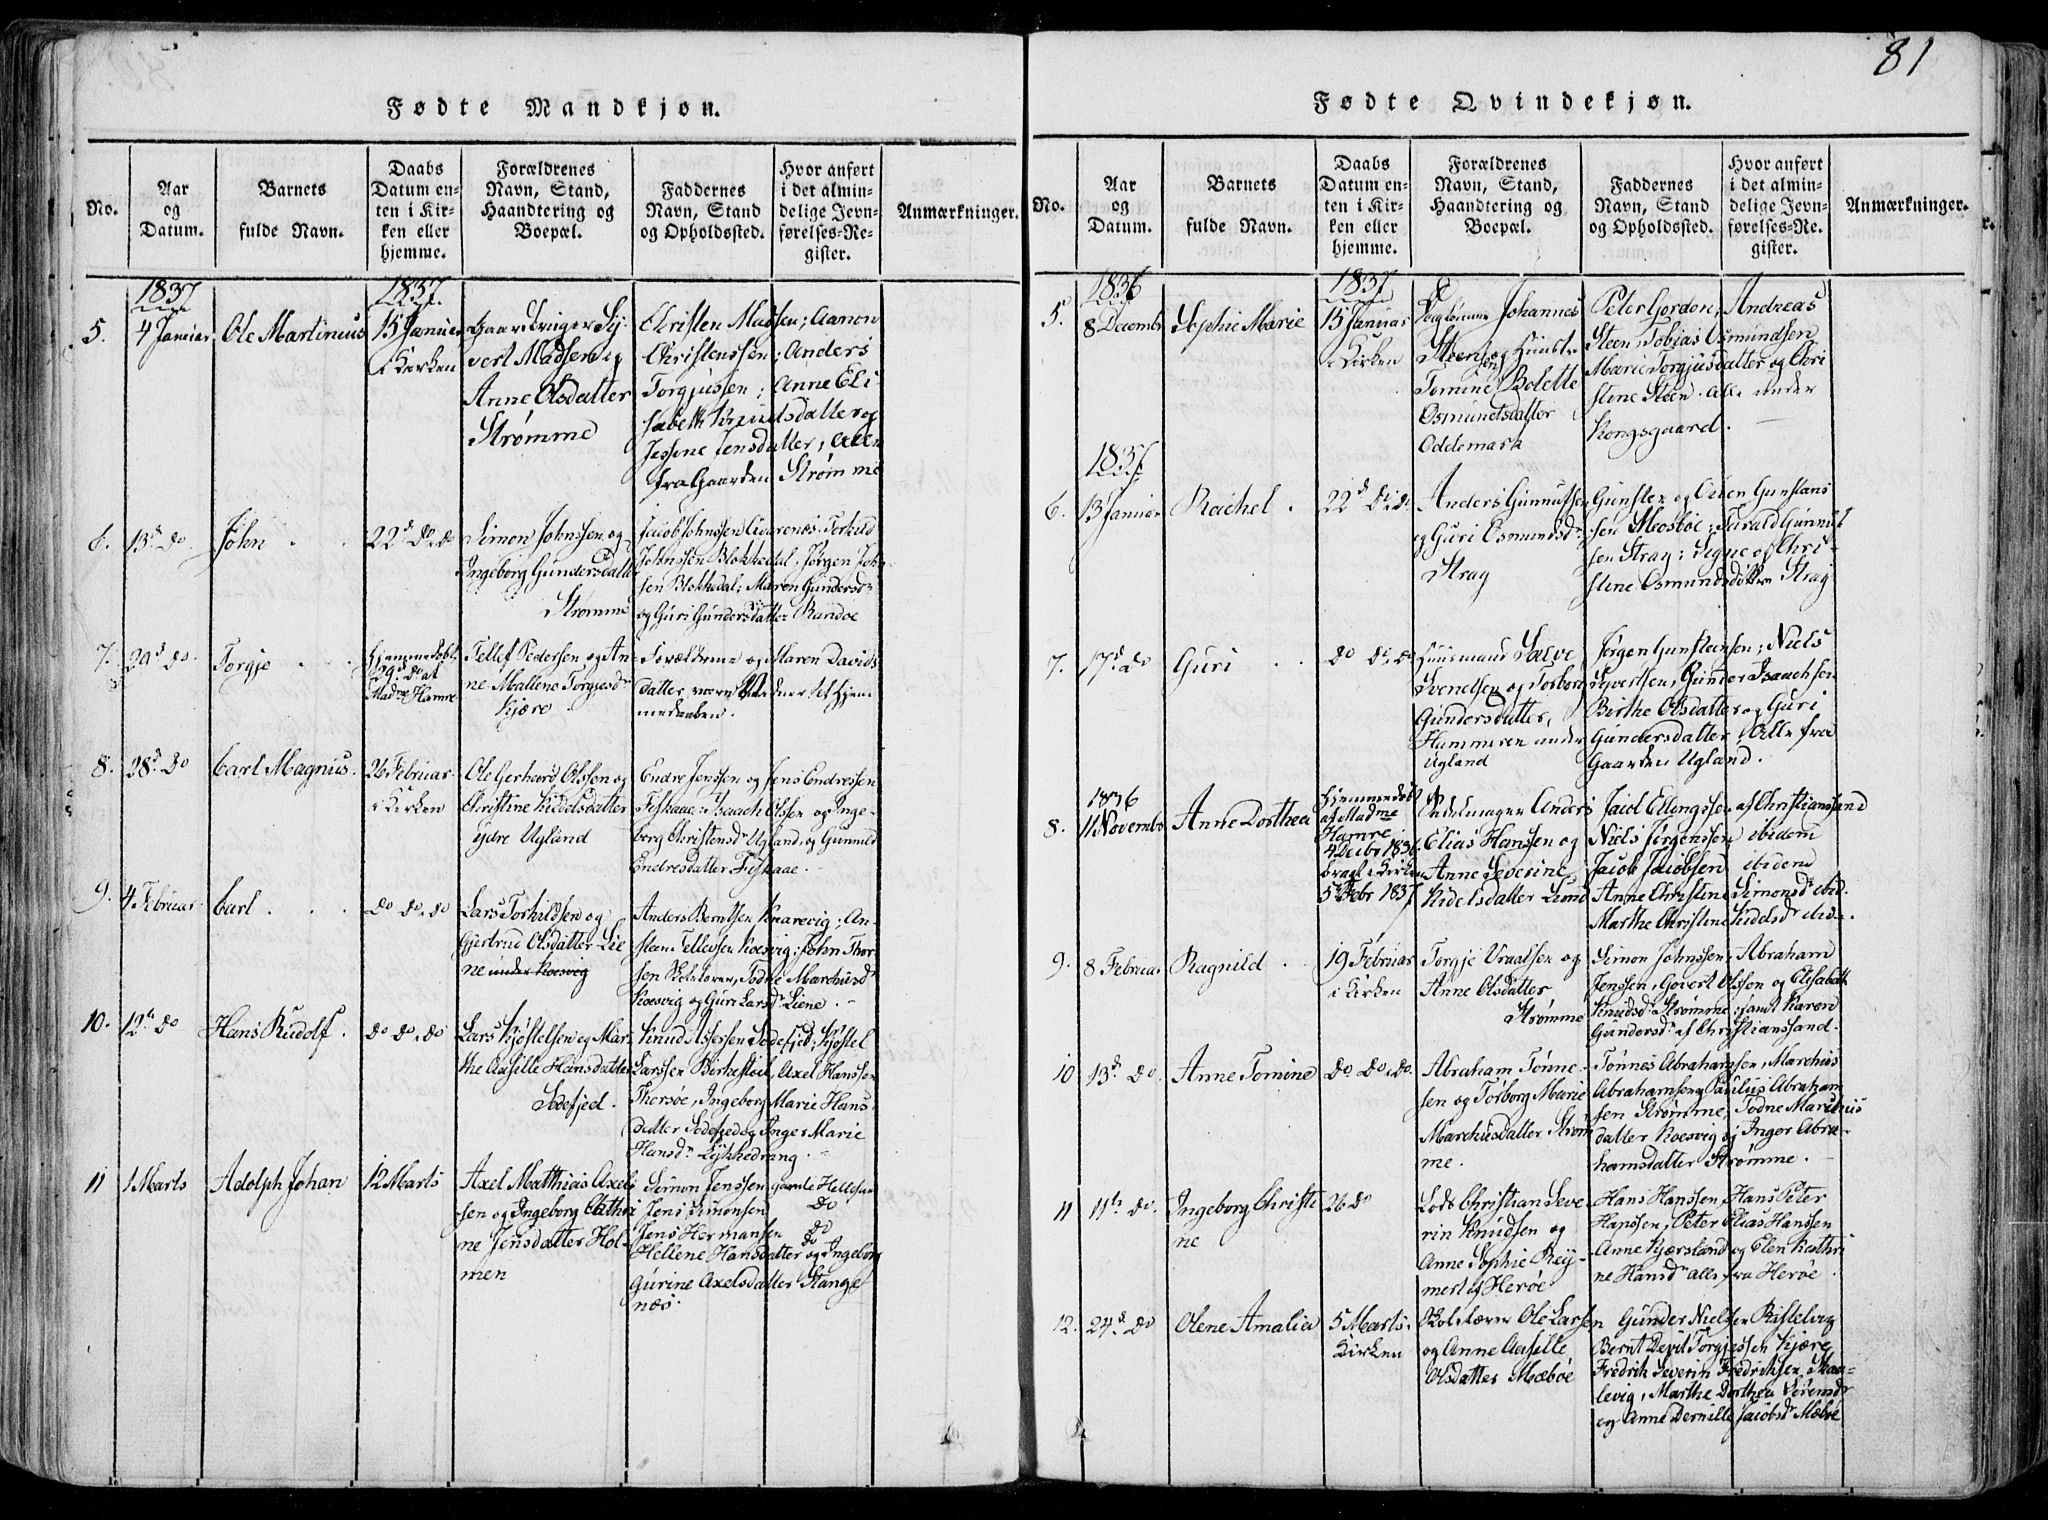 81
Fødte Mandkjøn.
No.
Aar
og
Datum.
Barnets
fulde Navn.
Daabs
Datum en-
ten i Kir-
ken eller
hjemme.
Forældrenes
Navn, Stand,
Haandtering og
Boepæl.
Faddernes
Navn, Stand
og Opholdssted.
Hvor anført
i det almin-
delige Jevn-
førelses-Re-
gister.
Anmærkninger.
5.
1837
4 Januar
Ole Martinus
1837.
15 Januar
i Kirken
Gaardbruger Sy-
vert Madsen og
Anne Olsdatter
Strømme
Christen Madsen; Aanon
Christenssen; Anders
Torgjussen; Anne Eli
sabeth Knudsdatter og
Jessine Jensdatter, alle
fra Gaarden Strømme
6.
13d. do
John
22d. do. do
Simon Johnssen og
Ingeborg Gundersdatter
Strømme
Jacob Johnssen Torkild
Johnssen Blokkedal, Jørgen John
sen Blokkedal; Maren Gundersdr
og Guri Gundersdatter Randøe
7.
20d. do.
Torgje
Hjemmedøbt
29d. do af
Madme Hamre
Tellef Pedersen og An
ne Mallene Torgjesdr
Kjære
Forældrene og Maren Davids
datter være Faddere ved Hjem
medaaben.
8.
28d. do
Carl Magnus.
26 Februar
i Kirken
Ole Gerhard Olssen og
Christine Kiddelsdatter
ydre Ugland
Endre Jenssen og Jens Endressen
Fiskaae; Isaach Olssen og Inge-
borg Christensdr Ugland, og Gunnild
Endresdatter Fiskaae.
9.
4 Februar
Carl
do do. do
Lars Torkildsen og
Gjertrud Olsdatter Lie
ne under Kosvig
Anders Berntsen Knarevig; An-
steen Tellevsen Kosvig; John Thor
sen Skolelærer, Todne Marchusdr
Kosvig og Guri Larsdr Liene.
10.
12te do
Hans Rudolf.
do do. do
Lars Kjøstelsen og Mar
the Aasille Hansdatter
Sodefjed.
Knud Assersen Sodefjed; Kjøstel
Larssen Birkestøel, Axel Hanssen
Thorsøe, Ingeborg Marie Hans
datter Sodefjed og Inger Marie
Hansdr Lykkedrang.
11
1 Marts
Adolph Johan
12 Marts
Axel Matthias Axel
sen og Ingeborg Cathri
ne Jensdatter Hol-
men
Simon Jenssen gamle Hellesund
Jens Simonsen do
Jens Hermansen do
Hellene Hansdatter do og Ingeborg
Gurine Axelsdatter Stange
næs.
Fødte Qvindekjøn.
No.
Aar
og
Datum.
Barnets
fulde Navn.
Daabs
Datum en-
ten i Kir-
ken eller
hjemme.
Forældrenes
Navn, Stand,
Haandtering og
Boepæl.
Faddernes
Navn, Stand
og Opholdssted.
Hvor anført
i det almin-
delige Jevn-
førelses-Re-
gister.
Anmærkninger.
5.
1836
8 Decembr
Sophie Marie
1837
15 Januar
i Kirken
Johannes
Steen og Hustr
Tomine Bolette
Osmundsdatter
Oddemark
Peter Gordon, Andreas
Steen, Tobias Osmundsen
Marie Torgjusdatter og Chri
stine Steen. Alle under
Kongsgaard.
6.
1837
13 Januar
Rachel.
22d do. do.
Anders Gunnufsen
og Guri Osmundsdr
Stray
Gunsten og Osten Gunstens
sen Mosbøe; Tarald Gunnuf
sen Stray; Signe og Chri-
stine Osmundsdøttre Stray
7.
17d. do
Guri
do do. do
Huusmand Salve
Svendsen og Torborg
Gundersdatter,
Hammeren under
Ugland
Jørgen Gunsteinsen; Niels
Syvertsen, Gunder Isaachsen
Birthe Olsdatter og Guri
Gundersdatter, Alle fra
Gaarden Ugland.
8.
1836
11 Novembr
Anne Dorthea
Hjemmedøbt
af Madme
Hamre
4 Decbr 1836
bragt i Kirken
5te Febr 1837
Anders
Elias Hanssen og
Anne Severine
Kidelsdatter Lund
Jacob Ellengssen af Christianssand
Niels Jørgenssen ibidem
Jacob Jacobsen ibidem
Anne Christine Simonsdr ibid.
Marthe Christine Kidelsdr ibid.
9.
8 Februar
Ragnild
19 Februar
i Kirken
Torgje Vraalsen og
Anne Olsdatter
Strømme
Simon Johnssen, Abraham
Jenssen, Govert Olssen og Elisabeth
Knudsdr Strømme; samt Karen
Gundersdr af Christianssand.
10
13d. do.
Anne Tomine
do do. do.
Abraham Tønne-
sen og Torborg Marie
Marchusdatter Strøm
me.
Tønnes Abrahamsen, Marchus
Abrahamsen, Paulus Abraham
sen Strømme, Todne Marchus
datter Kosvig og Inger Abra-
hamsdatter Strømme.
11
11te do.
Ingeborg Christi
ne
26 do
Lods Christian Seve
rin Knudsen og
Anne Sophie Rey-
mert af Herøe
Hans Hanssen, Hans Peter
Hanssen, Peter Elias Hanssen
Anne Kjærsland og Elen Kathri
ne Hansdr alle fra Herøe.
12.
24d. do
Olene Amalia
5 Marts.
Kirken
Skolelærer Ole Larsen
og Anne Aasille
Olsdatter Mæbøe
Gunder Nielsen Ristelvig
Bernt Devit Torgjussen Kjære
Fredrik Severin Fredriksen Skaa-
levig, Marthe Dorthea Sørensdr
og Anne Pernille Jacobsdr Mæbøe